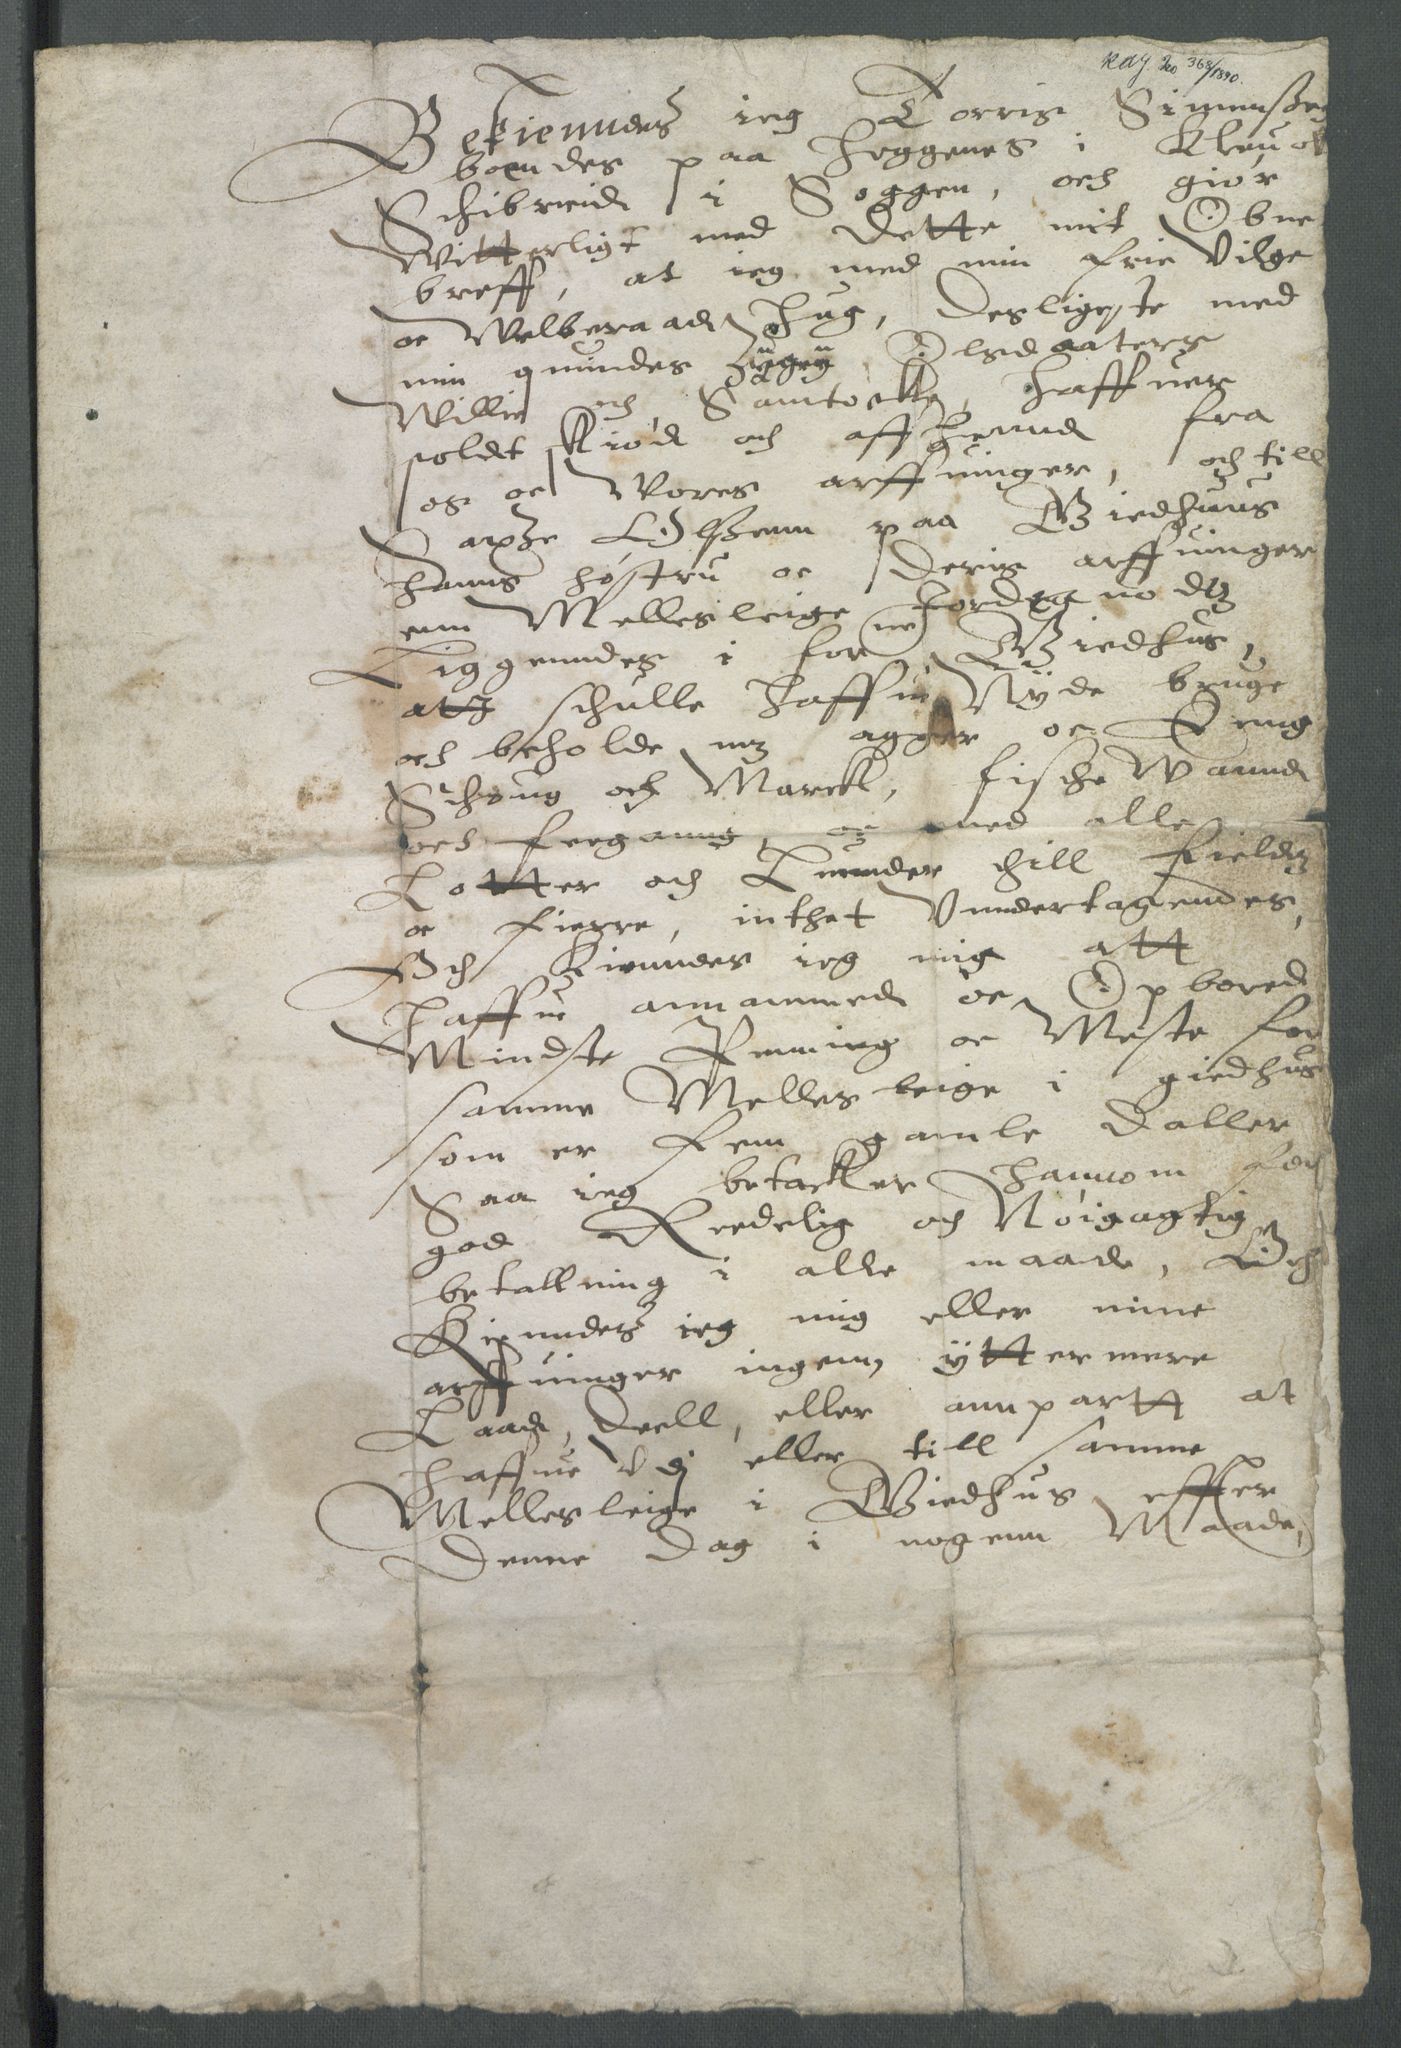 RAJ. No 368/1890.
Bekiennder ieg Torris Simensßen
boendes paa Hoggenes i
Schibreide i Soggen, och giør
Witterligt med dette mit Obne
breff, at ieg med min frie Vilge
oc Welberaad Hug, Desligeste med
min quindes Olsdaaters
Willie och Samtøcke, haffuer
soldt Kiød och affhennd fra
os oc Wores arffuinger, och till
Olßenn paa Giedhuus
hanns høstru oc deris arffuinger
enn Mellesleige
Liggenndes i forne Giedhus,
att schulle haffue Nÿde bruge
och beholde mz agger oc Eenng
Schoug och Marck, fische Wannd
och feeganng, oc med alle
Lotter och Lunnder thill fieldz
oc fierre, inthet Vundertagendes,
Och Kiennder ieg mig att
haffue annammed oc Opbored
Mindste Penning oc Meste for
samme Mellesleige i giedhus
som er fem gamle Daller
Saa ieg betacker hannom for
god Reedelig och Nøigagtig
betallning i alle maade, Och
Kiennder ieg mig eller mine
arffuinger ingenn ÿttermere
Laad, deell, eller annpartt at
haffue Vdj eller till samme
Mellesleige i Giedhus effter
Denne dag i nogenn Maade,